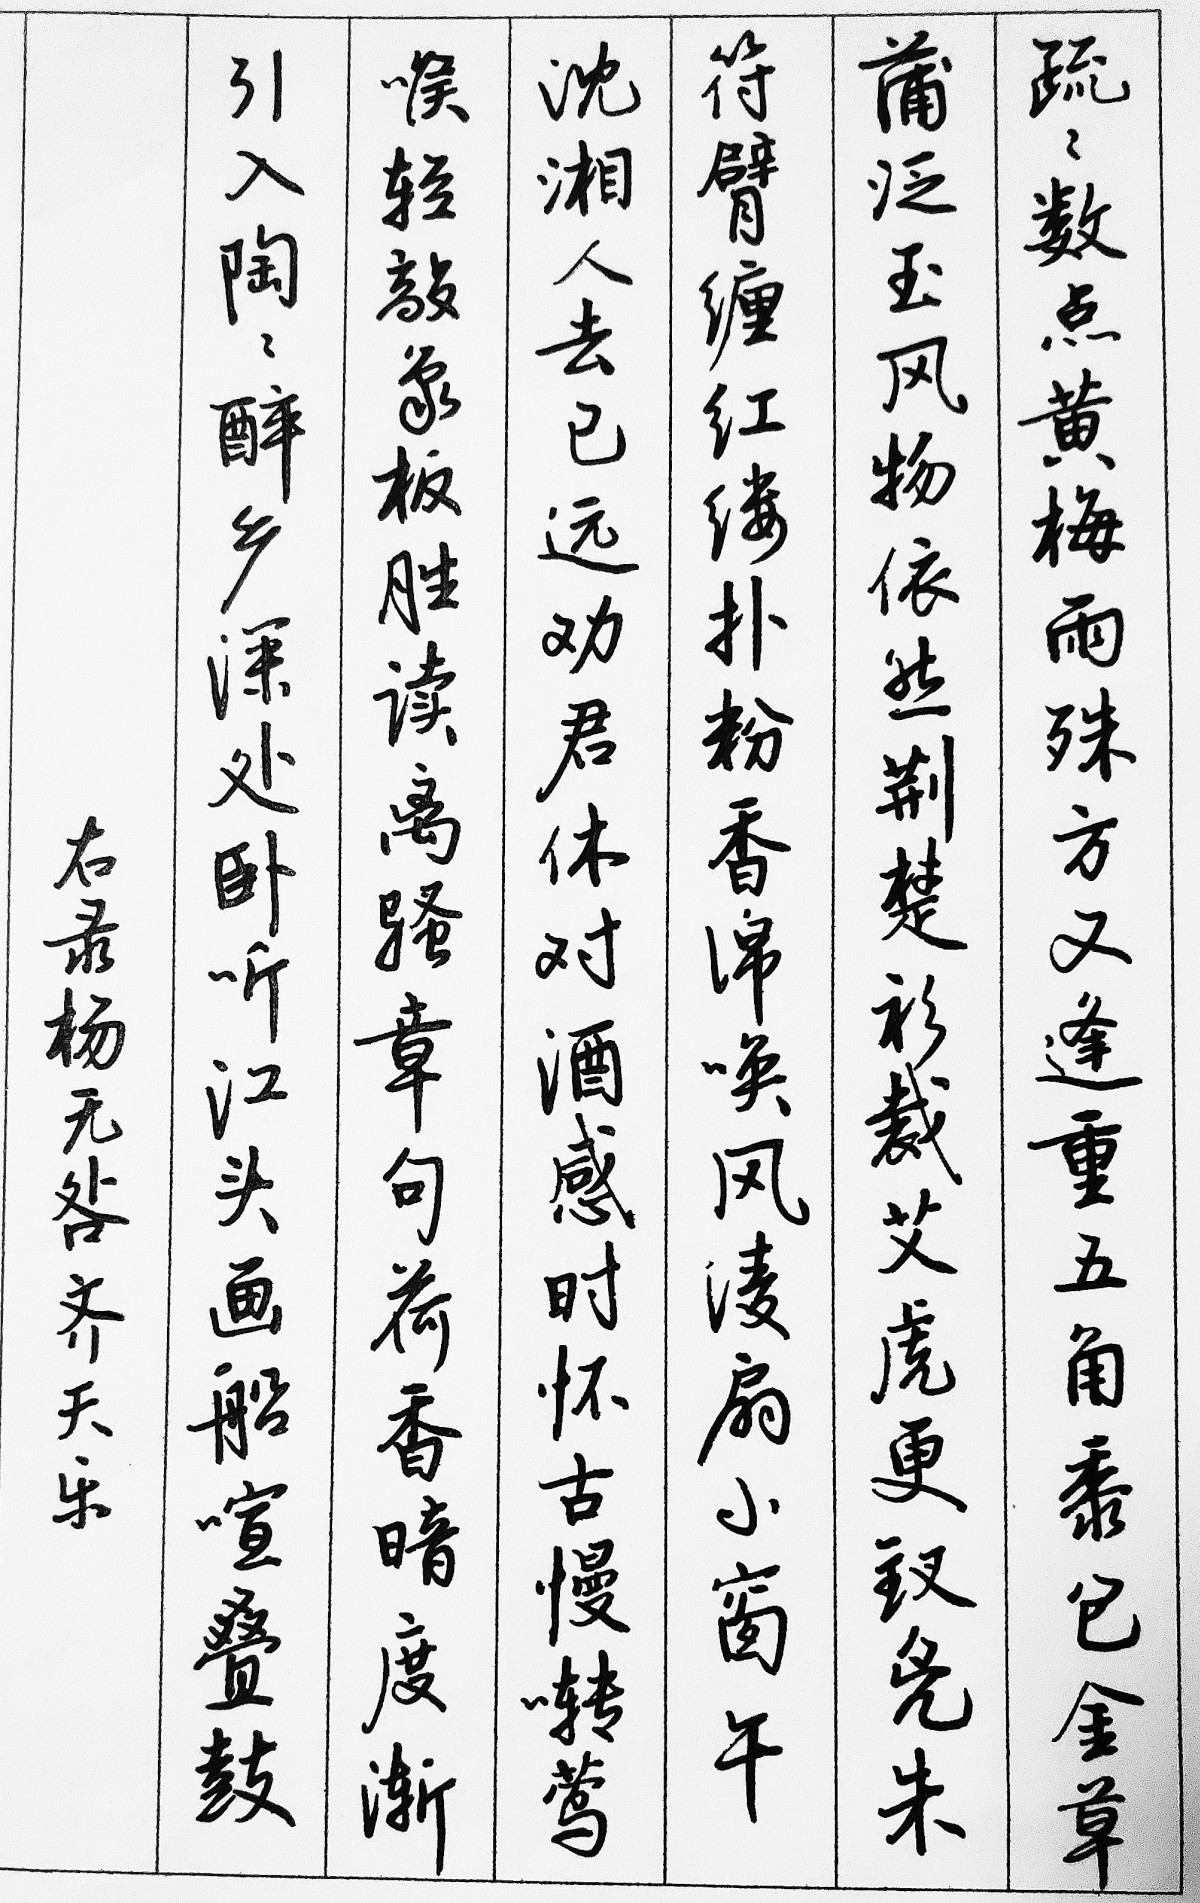 疏〻数点黄梅雨殊方又逢重五角黍包金草
蒲泛玉风物依然荆楚衫裁艾虎更钗凫朱
符臂缠红缕扑粉香绵唤风凌扇小窗午
沈湘人去已远劝君休对酒感时怀古慢啭莺
喉轻敲象板胜读离骚章句荷香暗度渐
引入陶〻醉乡深处卧听江头画船喧叠鼓
右录杨无咎齐天乐